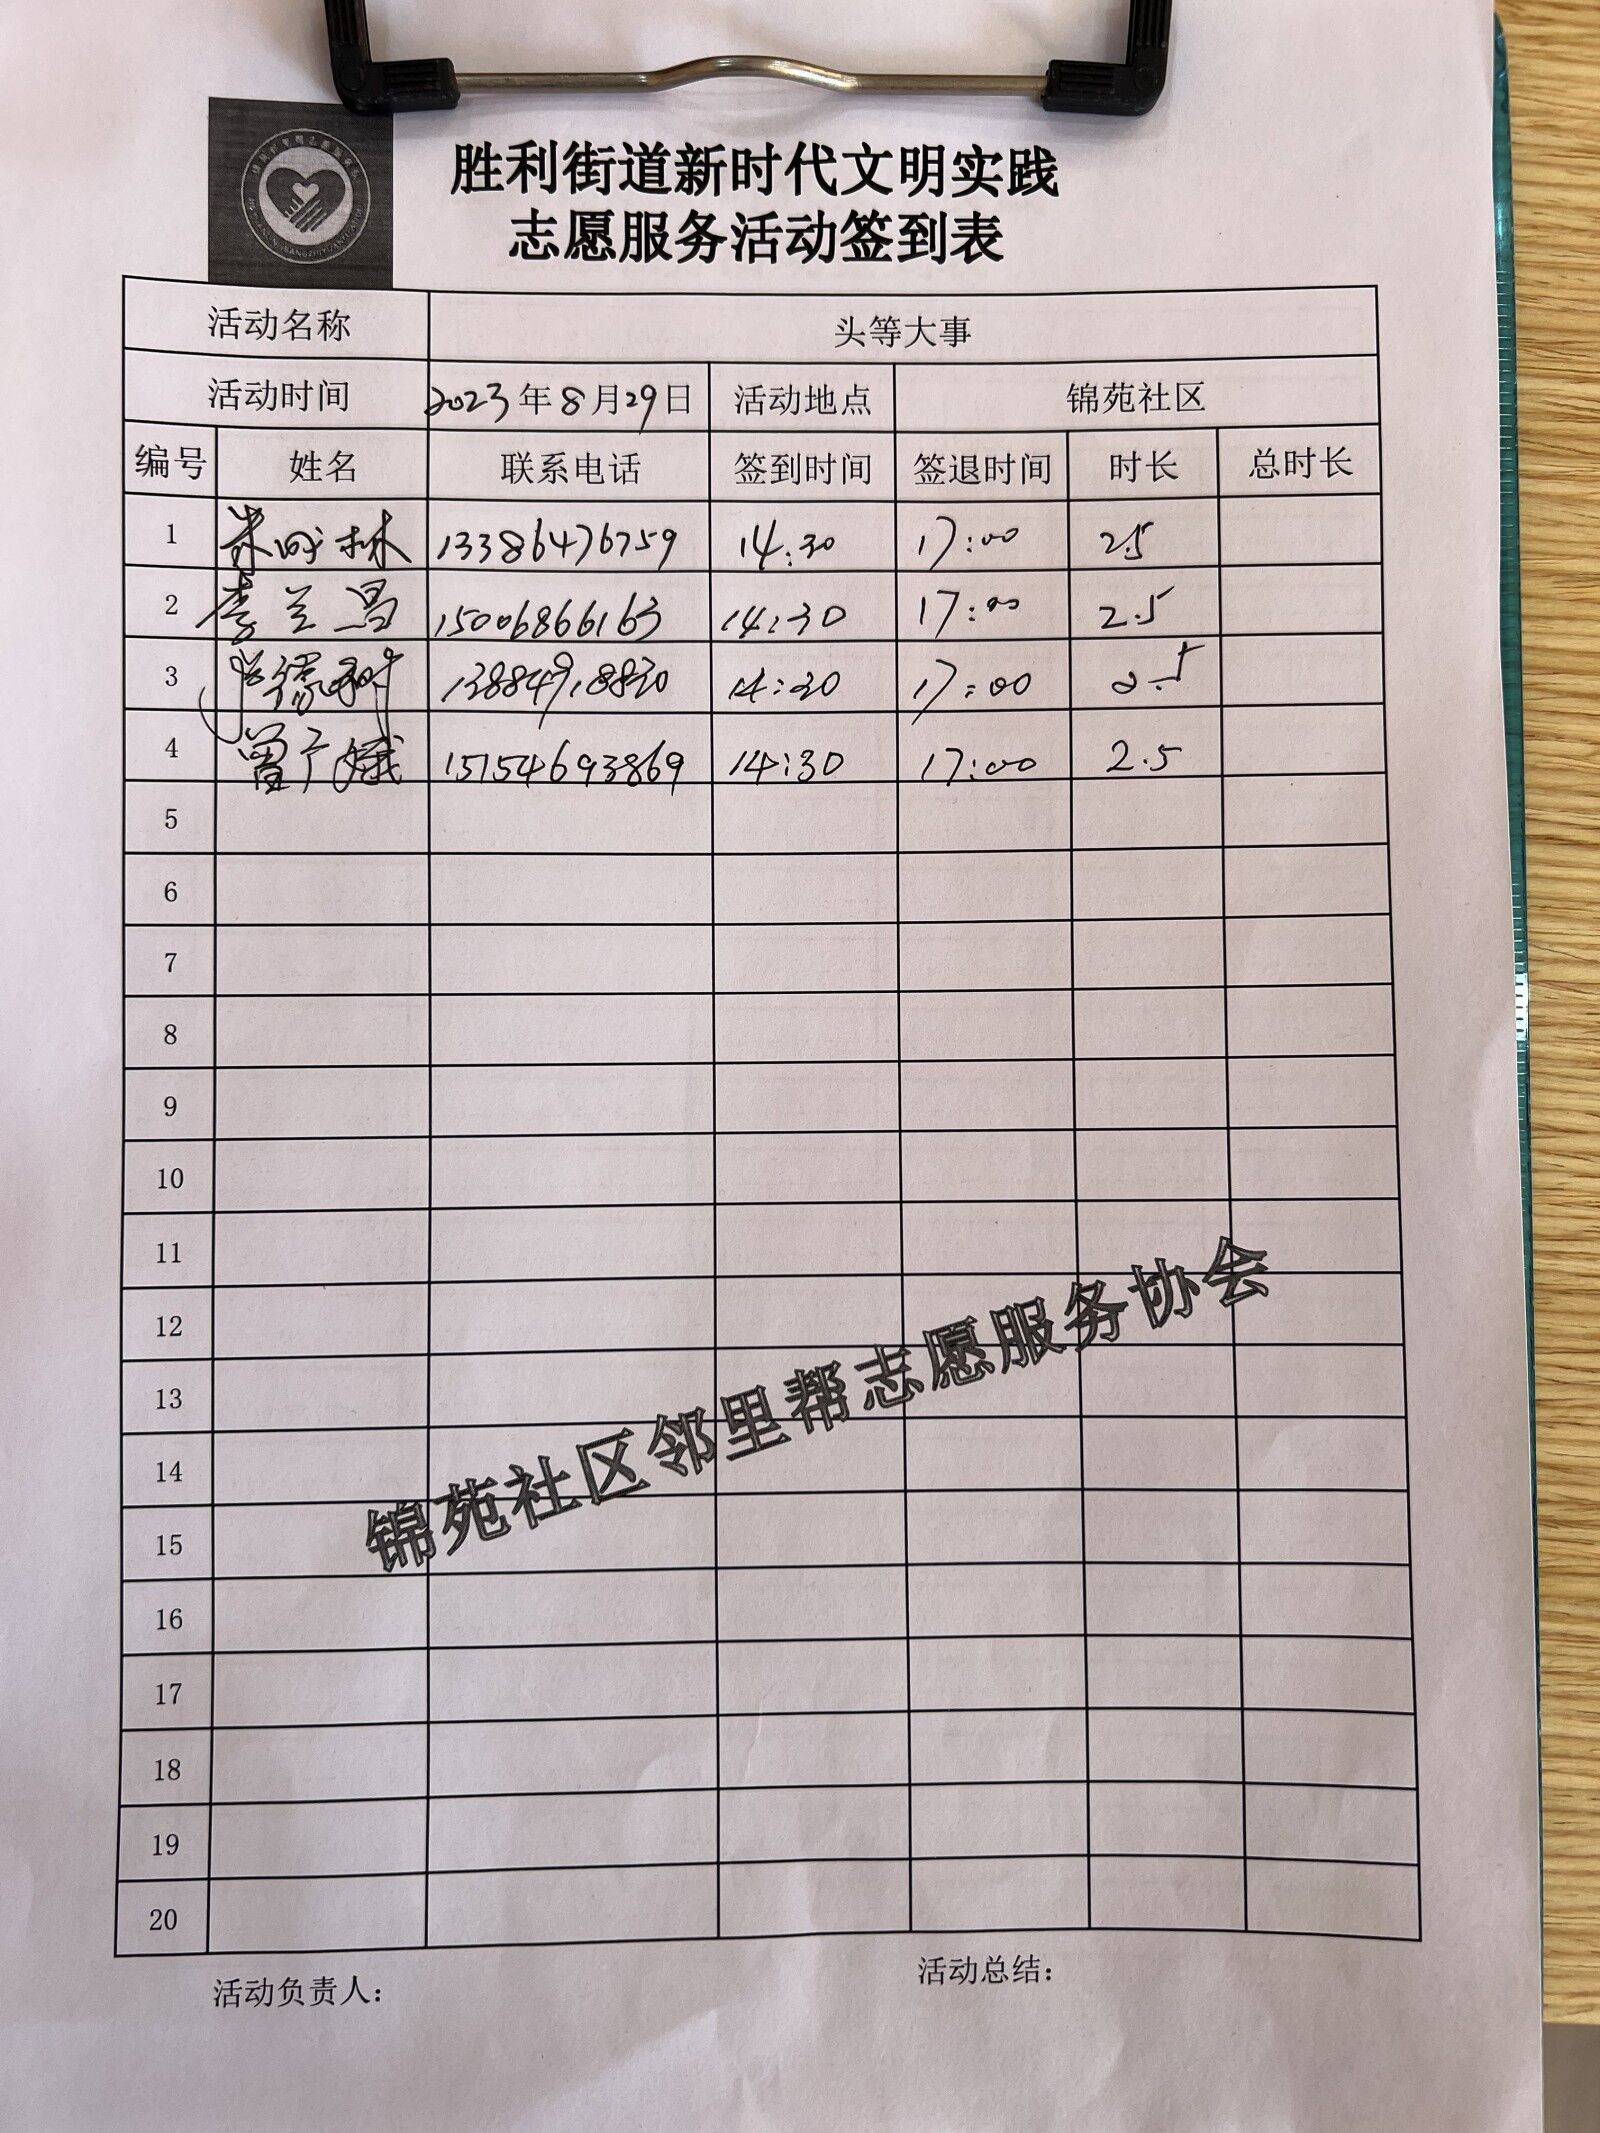 胜利街道新时代文明实践
志愿服务活动签到表
活动名称 头等大事
活动时间 2023年8月29日 活动地点 锦苑社区
编号 姓名 联系电话 签到时间 签退时间 时长 总时长
1 林 13386476759 14:30 17:00 2.5
2 李兰昌 15006866163 14:30 17:00 2.5
3 13884918830 14:30 17:00 2.5
4 曾广娥 15154693869 14:30 17:00 2.5
5
6
7
8
9
10
11
12
13
14
15
16
17
18
19
20
锦苑社区邻里帮志愿服务协会
活动负责人： 活动总结：